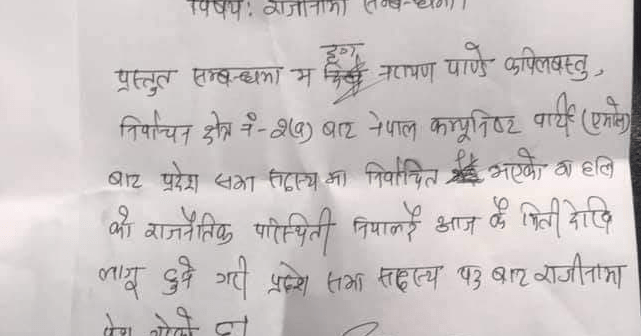 विषय: राजीनामा सम्बन्धमा।
प्रस्तुत सम्बन्धमा म नारायण पाण्डे कपिलबस्तु,
निर्वाचन क्षेत्र नं-२(ग) बाट नेपाल कम्यूनिष्ट पार्टी (एमाले)
बाट प्रदेश सभा सदस्य मा निर्वाचित भएको छु हाल
को राजनैतिक परिस्थिती नियाल्दै आज कै मिती देखि
लागू हुने गरी प्रदेश सभा सदस्य पद बाट राजीनामा
पेश गरेको छु।